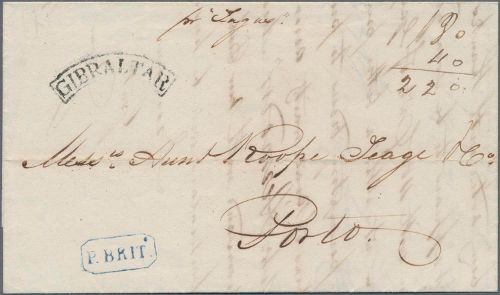 pr "Tagus"
180
40
220
GIBRALTAR
Messrs Hunt Roope Teage & Co
Porto.
P. BRIT.